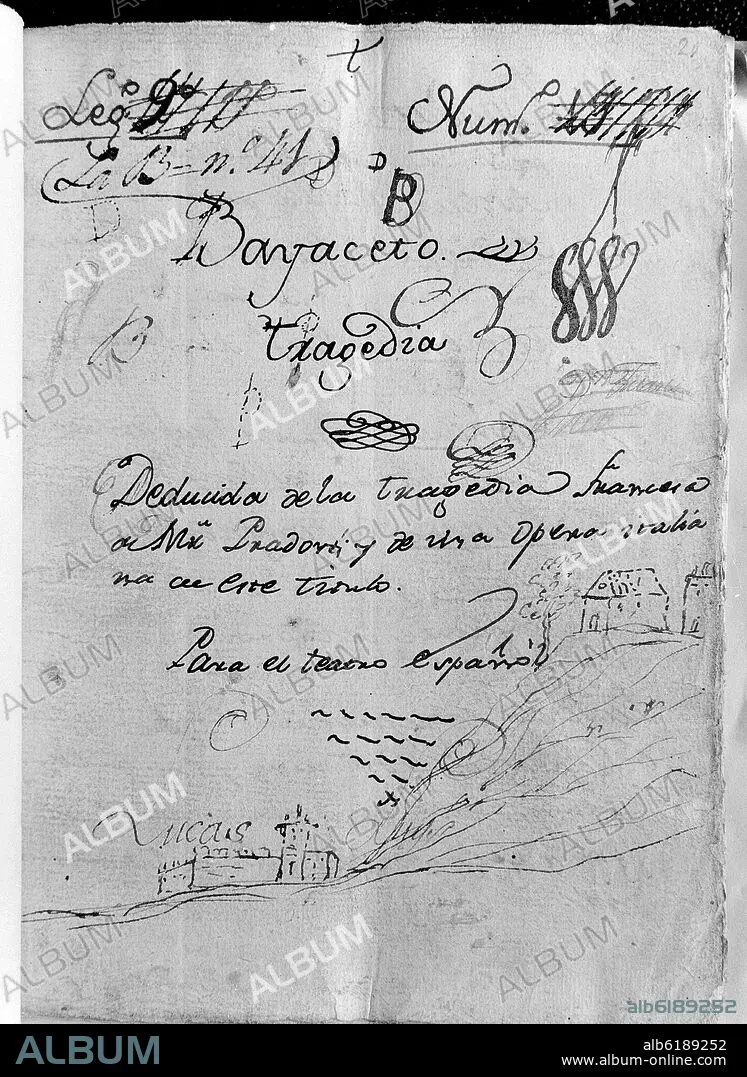 21
Leg.º 2º
Num.º
La B = n.º 41
B
Bayaceto.
tragedia
B
Deducida de la tragedia francesa
de Mr. Pradon y de una opera italia
na de este titulo.
Para el teatro español
Lucas
ALBUM
alb6189252
ALBUM
alb6189252
www.album-online.com